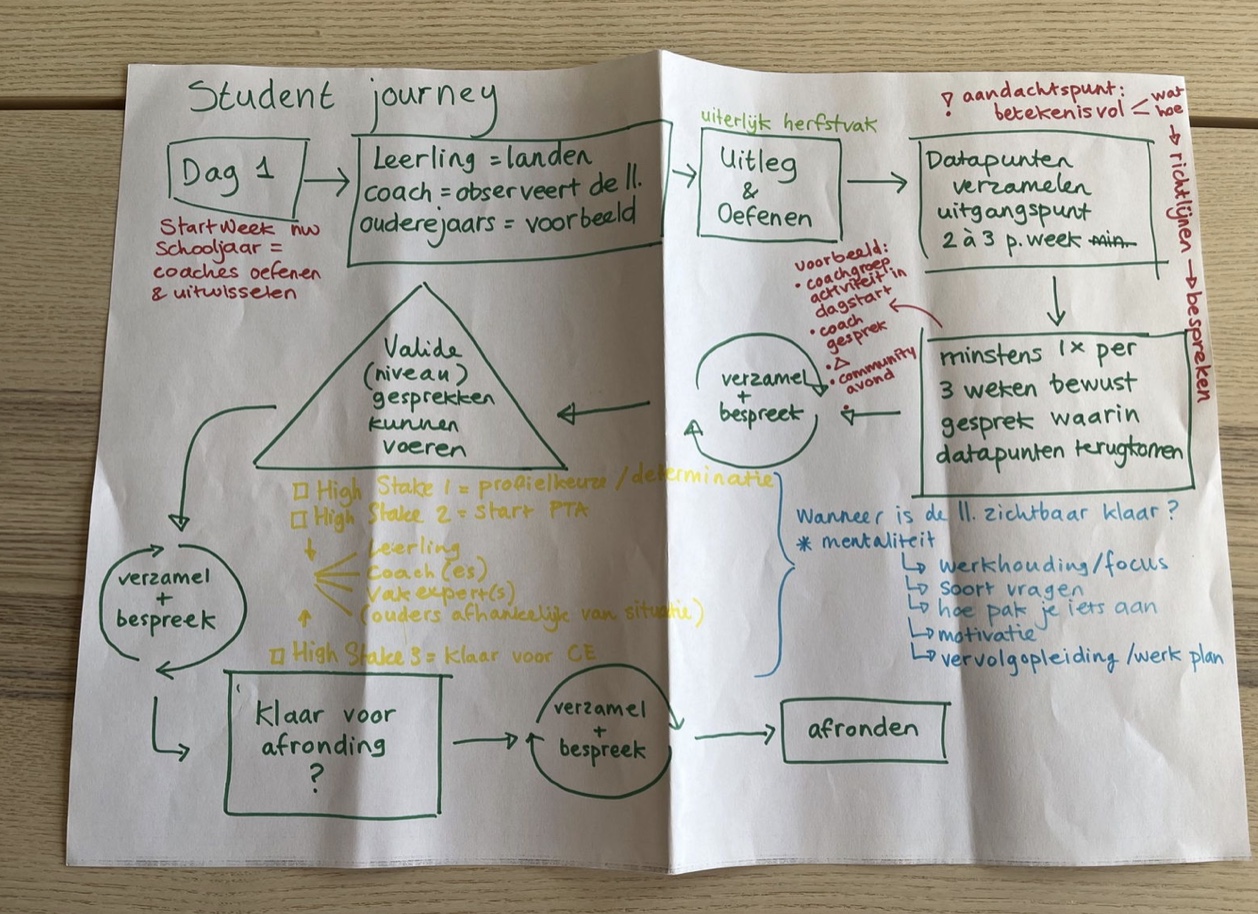 Student journey
Dag 1
Startweek nw
Schooljaar =
coaches oefenen
& uitwisselen
Leerling = landen
coach = observeert de ll.
ouderejaars = voorbeeld
uiterlijk herfstvak
Uitleg
&
Oefenen
? aandachtspunt:
betekenisvol < wat
hoe
→ richtlijnen → bespreken
Datapunten
verzamelen
uitgangspunt
2 à 3 p. week min.
minstens 1x per
3 weken bewust
gesprek waarin
datapunten terugkomen
voorbeeld:
• coachgroep
activiteit in
dagstart
• coach
gesprek
• △
• community
avond
•
verzamel
+
bespreek
Valide
(niveau)
gesprekken
kunnen
voeren
□ High Stake 1 = profielkeuze / determinatie
□ High Stake 2 = start PTA
leerling
coach(es)
vakexpert(s)
(ouders afhankelijk van situatie)
□ High Stake 3 = klaar voor CE
Wanneer is de ll. zichtbaar klaar?
* mentaliteit
↳ werkhouding/focus
↳ soort vragen
↳ hoe pak je iets aan
↳ motivatie
↳ vervolgopleiding/werk plan
verzamel
+
bespreek
Klaar voor
afronding
?
verzamel
+
bespreek
afronden